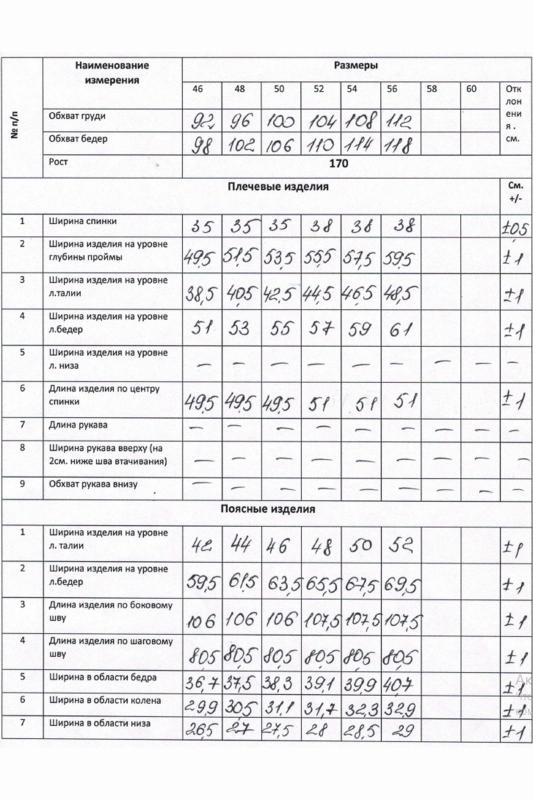 № п/п Наименование измерения Размеры Отклонения. см.
46 48 50 52 54 56 58 60
Обхват груди 92 96 100 104 108 112
Обхват бедер 98 102 106 110 114 118
Рост 170
Плечевые изделия См. +/-
1 Ширина спинки 35 35 35 38 38 38 ±0,5
2 Ширина изделия на уровне глубины проймы 49,5 51,5 53,5 55,5 57,5 59,5 ±1
3 Ширина изделия на уровне л.талии 38,5 40,5 42,5 44,5 46,5 48,5 ±1
4 Ширина изделия на уровне л.бедер 51 53 55 57 59 61 ±1
5 Ширина изделия на уровне л. низа – – – – – – – – –
6 Длина изделия по центру спинки 49,5 49,5 49,5 51 51 51 ±1
7 Длина рукава – – – – – – – – –
8 Ширина рукава вверху (на 2см. ниже шва втачивания) – – – – – – – – –
9 Обхват рукава внизу – – – – – – – – –
Поясные изделия
1 Ширина изделия на уровне л. талии 42 44 46 48 50 52 ±1
2 Ширина изделия на уровне л.бедер 59,5 61,5 63,5 65,5 67,5 69,5 ±1
3 Длина изделия по боковому шву 106 106 106 107,5 107,5 107,5 ±1
4 Длина изделия по шаговому шву 80,5 80,5 80,5 80,5 80,5 80,5 ±1
5 Ширина в области бедра 36,7 37,5 38,3 39,1 39,9 40,7 ±1
6 Ширина в области колена 29,9 30,5 31,1 31,7 32,3 32,9 ±1
7 Ширина в области низа 26,5 27 27,5 28 28,5 29 ±1